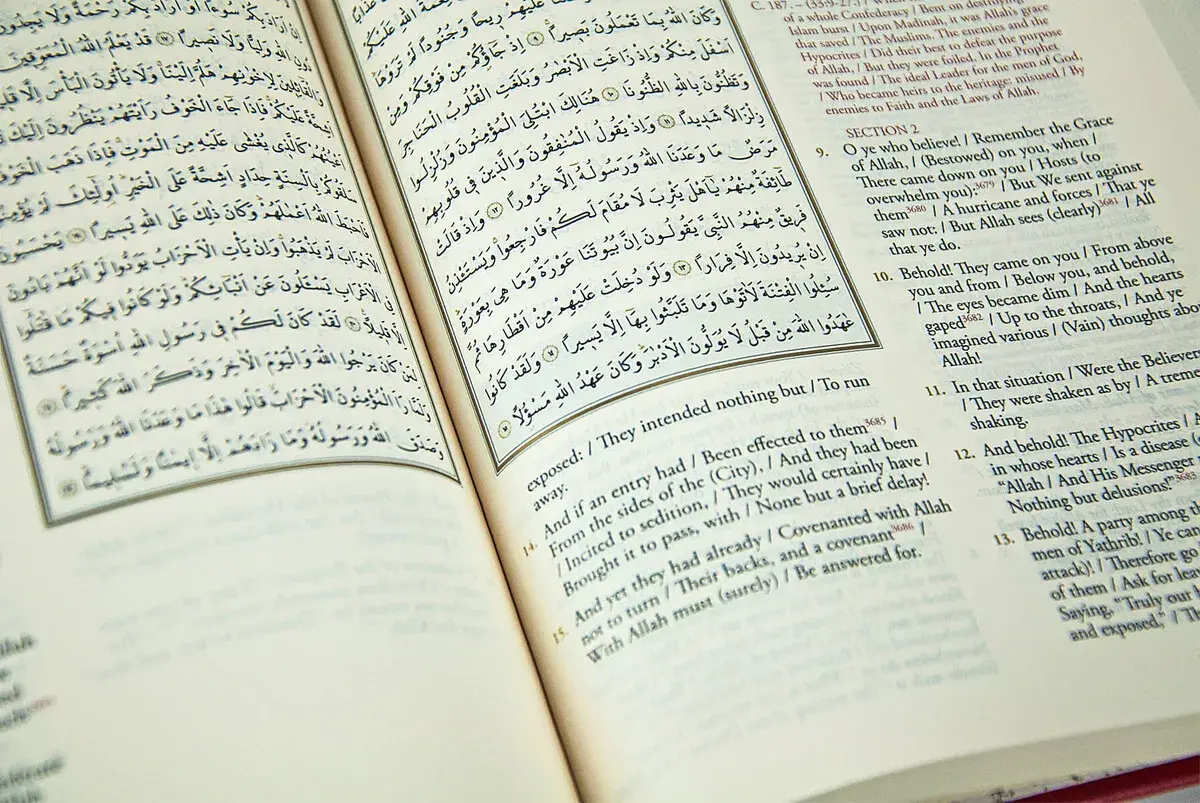 نِعْمَةَ اللّٰهِ عَلَيْكُمْ
عَلَيْهِمْ رِيحًا وَجُنُودًا لَمْ تَرَوْهَا
وَكَانَ اللّٰهُ بِمَا تَعْمَلُونَ بَصِيرًا ۝٩ اِذْ جَاؤُكُمْ مِنْ فَوْقِكُمْ وَمِنْ
اَسْفَلَ مِنْكُمْ وَاِذْ زَاغَتِ الْاَبْصَارُ وَبَلَغَتِ الْقُلُوبُ الْحَنَاجِرَ
وَتَظُنُّونَ بِاللّٰهِ الظُّنُونَا ۝١٠ هُنَالِكَ ابْتُلِيَ الْمُؤْمِنُونَ وَزُلْزِلُوا
زِلْزَالًا شَدِيدًا ۝١١ وَاِذْ يَقُولُ الْمُنَافِقُونَ وَالَّذِينَ فِي قُلُوبِهِمْ
مَرَضٌ مَا وَعَدَنَا اللّٰهُ وَرَسُولُهُ اِلَّا غُرُورًا ۝١٢ وَاِذْ قَالَتْ
طَائِفَةٌ مِنْهُمْ يَا اَهْلَ يَثْرِبَ لَا مُقَامَ لَكُمْ فَارْجِعُوا وَيَسْتَأْذِنُ
فَرِيقٌ مِنْهُمُ النَّبِيَّ يَقُولُونَ اِنَّ بُيُوتَنَا عَوْرَةٌ وَمَا هِيَ بِعَوْرَةٍ
اِنْ يُرِيدُونَ اِلَّا فِرَارًا ۝١٣ وَلَوْ دُخِلَتْ عَلَيْهِمْ مِنْ اَقْطَارِهَا ثُمَّ
سُئِلُوا الْفِتْنَةَ لَاٰتَوْهَا وَمَا تَلَبَّثُوا بِهَا اِلَّا يَسِيرًا ۝١٤ وَلَقَدْ كَانُوا
عَاهَدُوا اللّٰهَ مِنْ قَبْلُ لَا يُوَلُّونَ الْاَدْبَارَ وَكَانَ عَهْدُ اللّٰهِ مَسْؤُلًا ۝١٥
C. 187. – (33:9-27.)
of a whole Confederacy / Bent on destroying
Islam burst / Upon Madinah, it was Allah's grace
that saved / The Muslims. The enemies and the
Hypocrites / Did their best to defeat the purpose
of Allah, / But they were foiled. In the Prophet
was found / The ideal Leader for the men of God,
/ Who became heirs to the heritage: misused / By
enemies to Faith and the Laws of Allah.
SECTION 2
9. O ye who believe! / Remember the Grace
of Allah, / (Bestowed) on you, when /
There came down on you / Hosts (to
overwhelm you):3679 / But We sent against
them3680 / A hurricane and forces / That ye
saw not: / But Allah sees (clearly)3681 / All
that ye do.
10. Behold! They came on you / From above
you and from / Below you, and behold,
/ The eyes became dim / And the hearts
gaped3682 / Up to the throats, / And ye
imagined various / (Vain) thoughts about
Allah!
11. In that situation / Were the Believers
/ They were shaken as by / A
shaking.
12. And behold! The Hypocrites /
in whose hearts / Is a disease
"Allah / And His Messenger
Nothing but delusions!"3683
13. Behold! A party among
men of Yathrib! / Ye
attack)! / Therefore go
of them / Ask for
Saying, "Truly our
and exposed," /
exposed: / They intended nothing but / To run
away.
14. And if an entry had / Been effected to them3685 /
From the sides of the (City), / And they had been
/ Incited to sedition, / They would certainly have /
Brought it to pass, with / None but a brief delay!
15. And yet they had already / Covenanted with Allah
not to turn / Their backs, and a covenant3686 /
With Allah must (surely) / Be answered for.
اِنْ اَرَادَ بِكُمْ سُوءًا اَوْ اَرَادَ بِكُمْ رَحْمَةً وَلَا يَجِدُونَ
دُونِ اللّٰهِ وَلِيًّا وَلَا نَصِيرًا ۝١٧ قَدْ يَعْلَمُ اللّٰهُ الْمُعَوِّقِينَ
وَالْقَائِلِينَ لِاِخْوَانِهِمْ هَلُمَّ اِلَيْنَا وَلَا يَأْتُونَ الْبَأْسَ اِلَّا
اَشِحَّةً عَلَيْكُمْ فَاِذَا جَاءَ الْخَوْفُ رَاَيْتَهُمْ يَنْظُرُونَ اِلَيْكَ
اَعْيُنُهُمْ كَالَّذِي يُغْشٰى عَلَيْهِ مِنَ الْمَوْتِ فَاِذَا ذَهَبَ الْخَوْفُ
سَلَقُوكُمْ بِاَلْسِنَةٍ حِدَادٍ اَشِحَّةً عَلَى الْخَيْرِ اُولٰئِكَ لَمْ يُؤْمِنُوا
فَاَحْبَطَ اللّٰهُ اَعْمَالَهُمْ وَكَانَ ذٰلِكَ عَلَى اللّٰهِ يَسِيرًا ۝١٩ يَحْسَبُونَ
الْاَحْزَابَ لَمْ يَذْهَبُوا وَاِنْ يَأْتِ الْاَحْزَابُ يَوَدُّوا لَوْ اَنَّهُمْ بَادُونَ
فِي الْاَعْرَابِ يَسْـَٔلُونَ عَنْ اَنْبَائِكُمْ وَلَوْ كَانُوا فِيكُمْ مَا قَاتَلُوا
اِلَّا قَلِيلًا ۝٢٠ لَقَدْ كَانَ لَكُمْ فِي رَسُولِ اللّٰهِ اُسْوَةٌ حَسَنَةٌ
لِمَنْ كَانَ يَرْجُوا اللّٰهَ وَالْيَوْمَ الْاٰخِرَ وَذَكَرَ اللّٰهَ كَثِيرًا ۝٢١
وَلَمَّا رَاَ الْمُؤْمِنُونَ الْاَحْزَابَ قَالُوا هٰذَا مَا وَعَدَنَا اللّٰهُ وَرَسُولُهُ
وَصَدَقَ اللّٰهُ وَرَسُولُهُ وَمَا زَادَهُمْ اِلَّا اِيمَانًا وَتَسْلِيمًا ۝٢٢